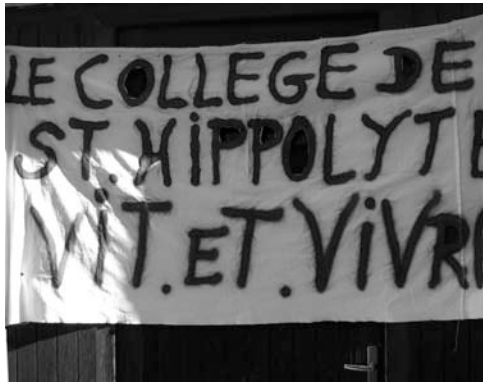 LE COLLEGE DE
ST. HiPPOLYTE
ViT. ET. ViVR